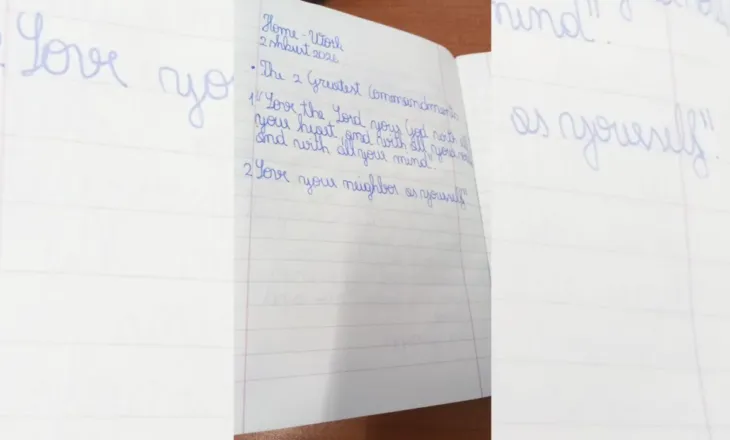 Home - Utorh
2 shkurt 2026
• The 2 Greatest Commandments
1."Love the Lord your God with all
your heart, and with all your soul
and with all your mind".
2."Love your neighbor as yourself"